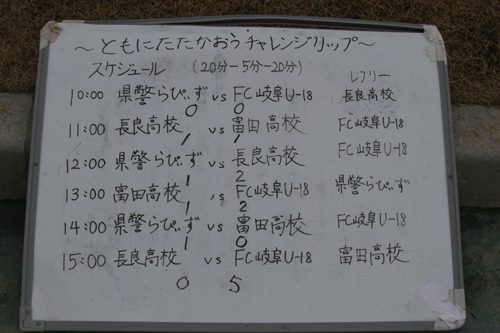 ～ともにたたかおう チャレンジカップ～
スケジュール (20分-5分-20分) レフリー
10:00 県警らぴぃず vs FC岐阜U-18 長良高校
0 0
11:00 長良高校 vs 富田高校 FC岐阜U-18
1 1
12:00 県警らぴぃず vs 長良高校 FC岐阜U-18
1 2
13:00 富田高校 vs FC岐阜U-18 県警らぴぃず
1 2
14:00 県警らぴぃず vs 富田高校 FC岐阜U-18
1 0
15:00 長良高校 vs FC岐阜U-18 富田高校
0 5